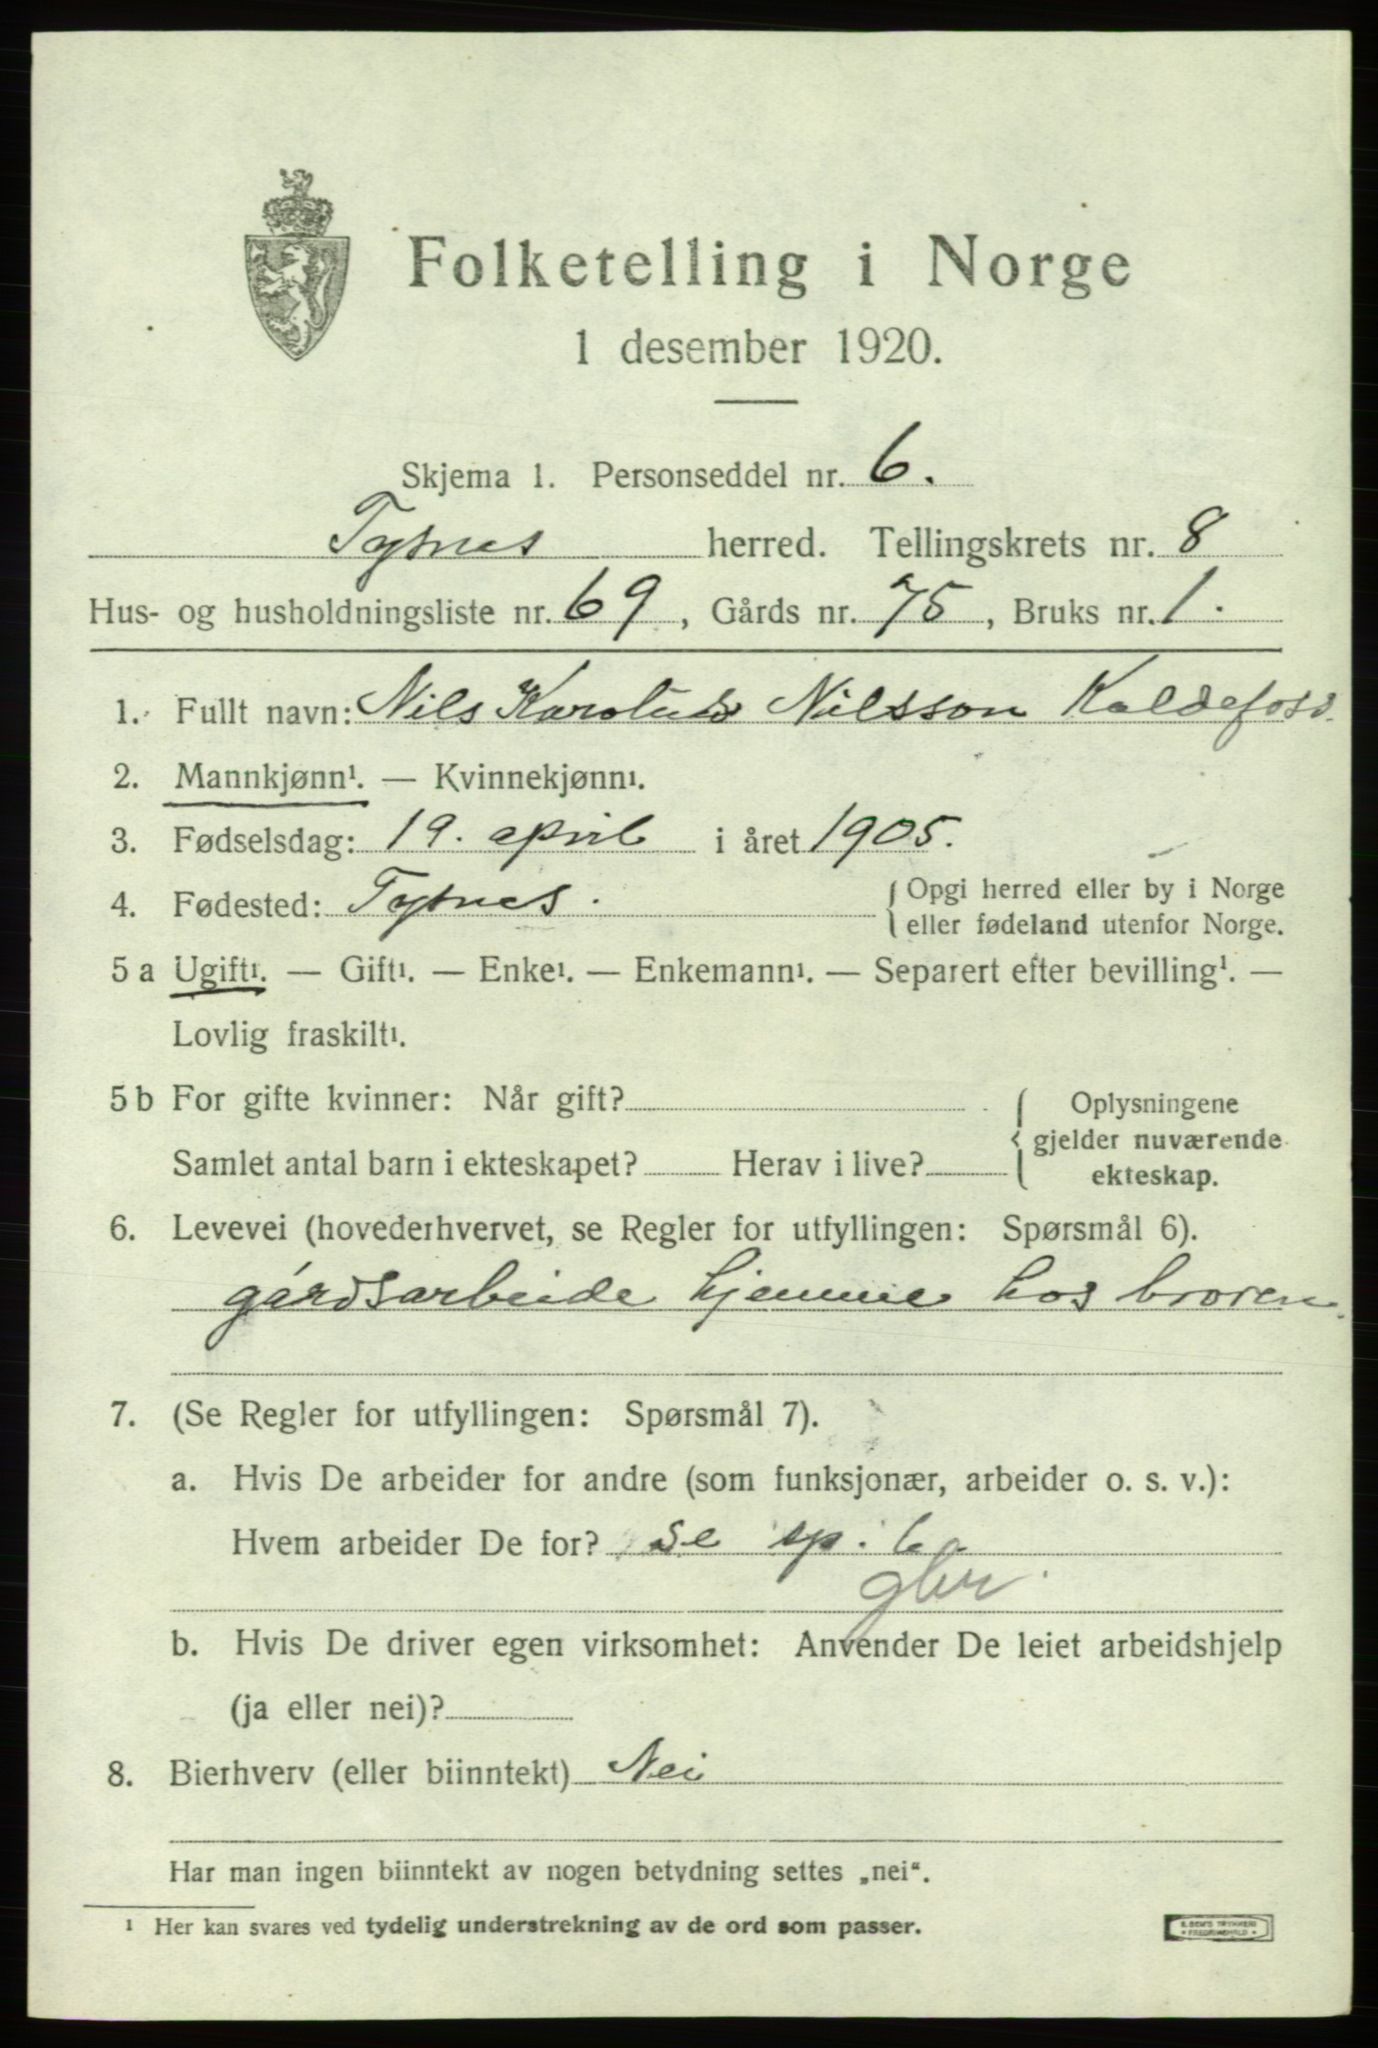 Folketelling i Norge
1 desember 1920.
Skjema 1. Personseddel nr. 6.
Tysnes herred. Tellingskrets nr. 8
Hus- og husholdningsliste nr. 69, Gårds nr. 75, Bruks nr. 1.
1. Fullt navn: Nils Karolus Nilsson Kaldefoss.
2. Mannkjønn¹. — Kvinnekjønn¹.
3. Fødselsdag: 19. april i året 1905.
4. Fødested: Tysnes. { Opgi herred eller by i Norge
eller fødeland utenfor Norge.
5 a Ugift¹. — Gift¹. — Enke¹. — Enkemann¹. — Separert efter bevilling¹. —
Lovlig fraskilt¹.
5 b For gifte kvinner: Når gift? { Oplysningene
gjelder nuværende
Samlet antal barn i ekteskapet? Herav i live?
ekteskap.
6. Levevei (hovederhvervet, se Regler for utfyllingen: Spørsmål 6).
gårdsarbeide hjemme hos broren.
7. (Se Regler for utfyllingen: Spørsmål 7).
a. Hvis De arbeider for andre (som funksjonær, arbeider o. s. v.):
Hvem arbeider De for? Se sp. 6.
gbr.
b. Hvis De driver egen virksomhet: Anvender De leiet arbeidshjelp
(ja eller nei)?
8. Bierhverv (eller biinntekt) Nei
Har man ingen biinntekt av nogen betydning settes „nei“.
¹ Her kan svares ved tydelig understrekning av de ord som passer.